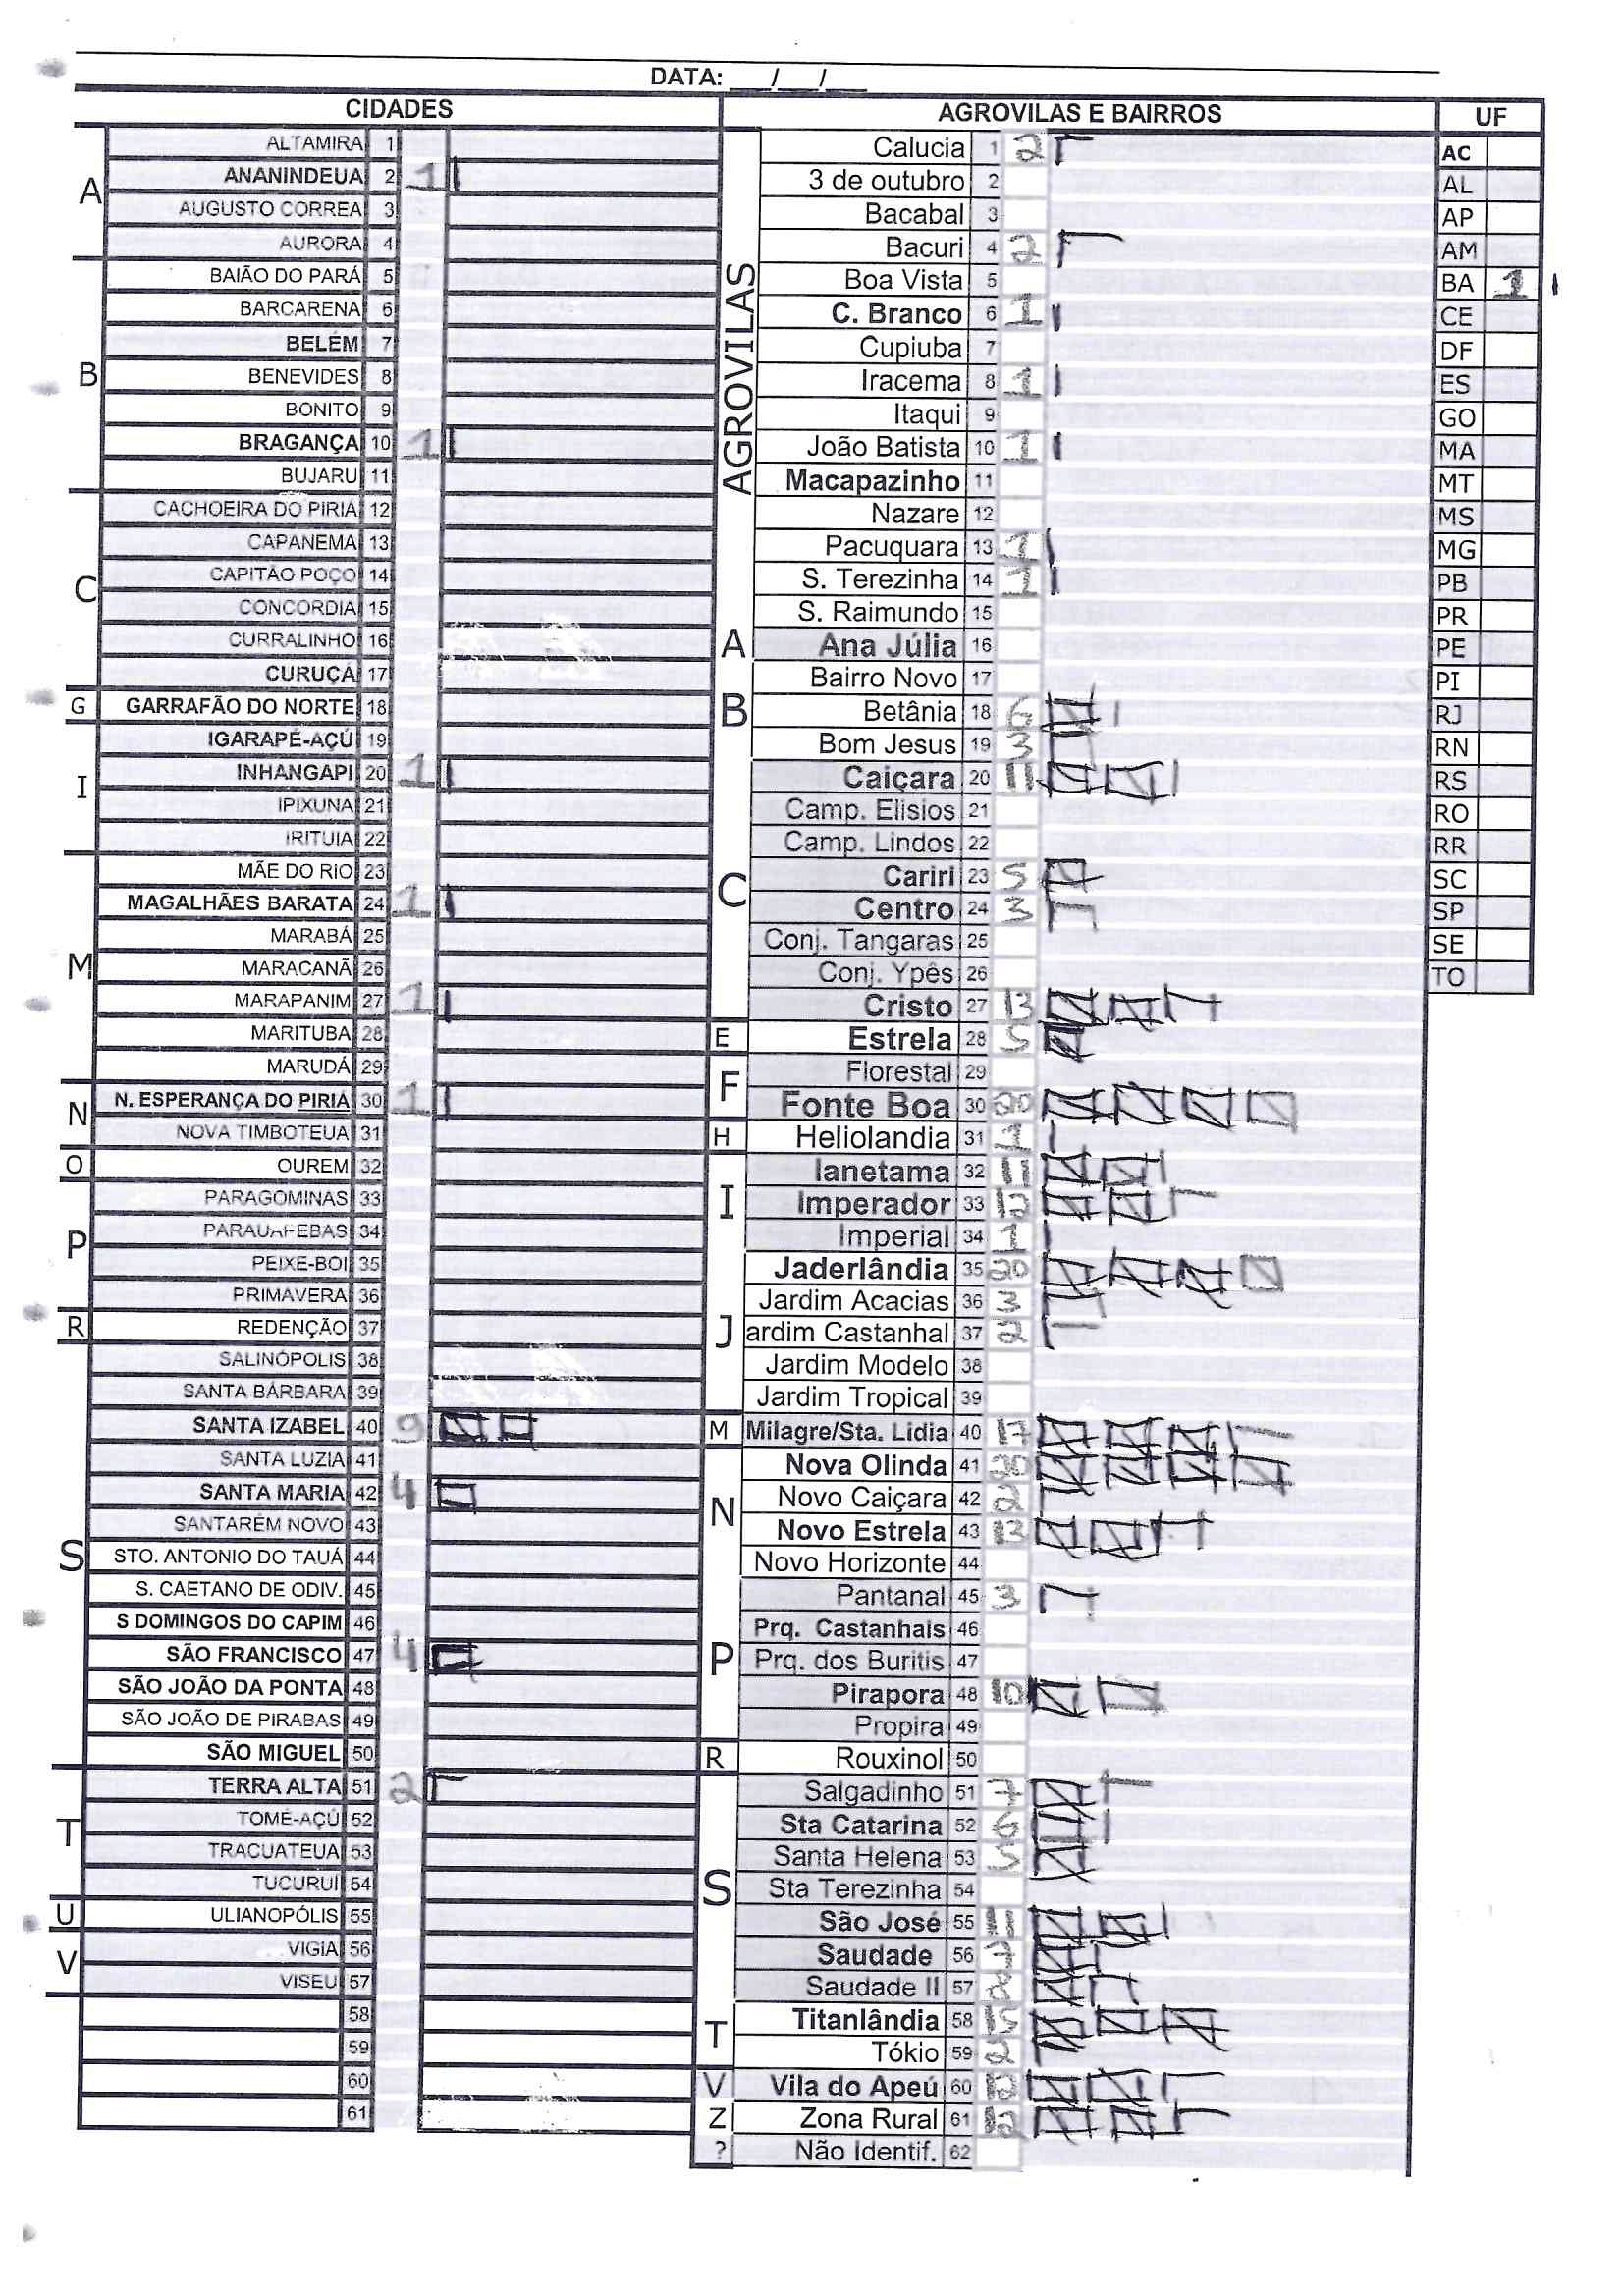 DATA: ___/___/___
CIDADES
A
ALTAMIRA 1
ANANINDEUA 2 1
AUGUSTO CORREA 3
AURORA 4
B
BAIÃO DO PARÁ 5
BARCARENA 6
BELÉM 7
BENEVIDES 8
BONITO 9
BRAGANÇA 10 1
BUJARU 11
C
CACHOEIRA DO PIRIÁ 12
CAPANEMA 13
CAPITÃO POÇO 14
CONCORDIA 15
CURRALINHO 16
CURUÇÁ 17
G
GARRAFÃO DO NORTE 18
I
IGARAPÉ-AÇÚ 19
INHANGAPI 20 1
IPIXUNA 21
IRITUIA 22
M
MÃE DO RIO 23
MAGALHÃES BARATA 24 1
MARABÁ 25
MARACANÃ 26
MARAPANIM 27 1
MARITUBA 28
MARUDÁ 29
N
N. ESPERANÇA DO PIRIÁ 30 1
NOVA TIMBOTEUA 31
O
OUREM 32
P
PARAGOMINAS 33
PARAUAPEBAS 34
PEIXE-BOI 35
PRIMAVERA 36
R
REDENÇÃO 37
S
SALINÓPOLIS 38
SANTA BÁRBARA 39
SANTA IZABEL 40 9
SANTA LUZIA 41
SANTA MARIA 42 4
SANTARÉM NOVO 43
STO. ANTONIO DO TAUÁ 44
S. CAETANO DE ODIV. 45
S DOMINGOS DO CAPIM 46
SÃO FRANCISCO 47 4
SÃO JOÃO DA PONTA 48
SÃO JOÃO DE PIRABAS 49
SÃO MIGUEL 50
T
TERRA ALTA 51 2
TOMÉ-AÇÚ 52
TRACUATEUA 53
TUCURUI 54
U
ULIANOPÓLIS 55
V
VIGIA 56
VISEU 57
58
59
60
61
AGROVILAS E BAIRROS
AGROVILAS
Calucia 1 2
3 de outubro 2
Bacabal 3
Bacuri 4 2
Boa Vista 5
C. Branco 6 1
Cupiuba 7
Iracema 8 1
Itaqui 9
João Batista 10 1
Macapazinho 11
Nazare 12
Pacuquara 13 1
S. Terezinha 14 1
S. Raimundo 15
A
Ana Júlia 16
B
Bairro Novo 17
Betânia 18 6
Bom Jesus 19 3
C
Caiçara 20 11
Camp. Elisios 21
Camp. Lindos 22
Cariri 23 5
Centro 24 3
Conj. Tangaras 25
Conj. Ypês 26
Cristo 27 13
E
Estrela 28 5
F
Florestal 29
Fonte Boa 30 20
H
Heliolandia 31 1
I
Ianetama 32 11
Imperador 33 12
Imperial 34 1
J
Jaderlândia 35 20
Jardim Acacias 36 3
ardim Castanhal 37 2
Jardim Modelo 38
Jardim Tropical 39
M
Milagre/Sta. Lidia 40 17
N
Nova Olinda 41 20
Novo Caiçara 42 2
Novo Estrela 43 13
Novo Horizonte 44
P
Pantanal 45 3
Prq. Castanhais 46
Prq. dos Buritis 47
Pirapora 48 10
Propira 49
R
Rouxinol 50
S
Salgadinho 51 7
Sta Catarina 52 6
Santa Helena 53 5
Sta Terezinha 54
São José 55 11
Saudade 56
Saudade II 57
T
Titanlândia 58 15
Tókio 59 2
V
Vila do Apeú 60
Z
Zona Rural 61 12
?
Não Identif. 62
UF
AC
AL
AP
AM
BA 1
CE
DF
ES
GO
MA
MT
MS
MG
PB
PR
PE
PI
RJ
RN
RS
RO
RR
SC
SP
SE
TO